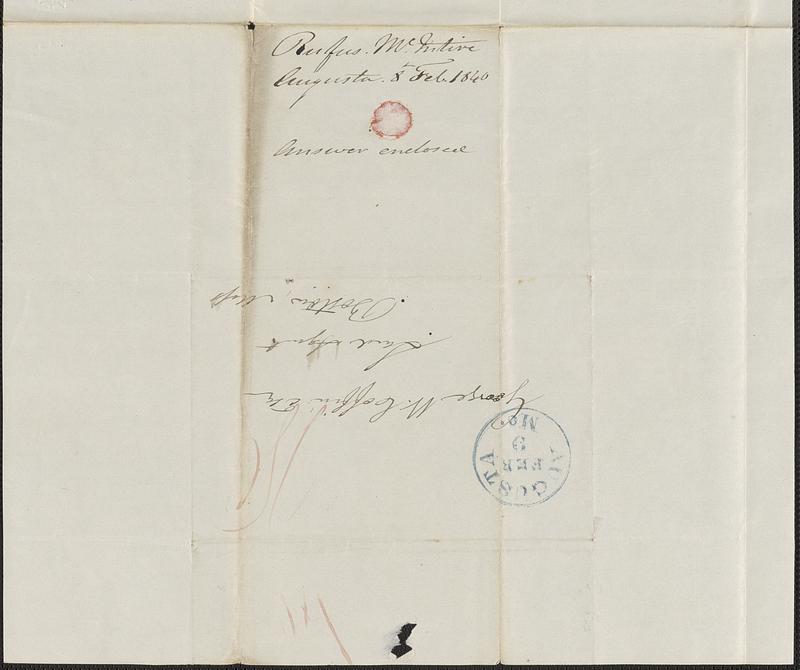 Rufus McIntire
Augusta. 8th Feb. 1840
Answer enclosed
George W. Coffin Esq
Land Agent
Boston, Mass
AUGUSTA
FEB
9
Me.